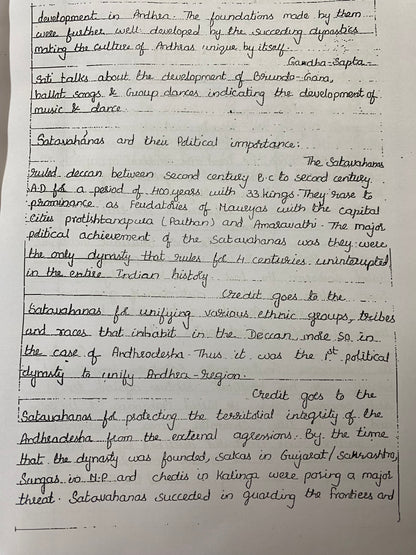 development in Andhra. The foundations made by them
were further well developed by the succeding dynasties
making the culture of Andhras unique by itself.
Gandha-Sapta-
Sati talks about the development of Brunda-Gana,
ballot songs & Group dances indicating the development of
music & dance
Satavahanas and their Political importance:
The Satavahanas
ruled deccan between second century B.C to second century
A.D for a period of 400 years with 33 kings. They rose to
prominance as Feudatories of Mauryas with the capital
Cities protishtanapura (Paithan) and Amaravathi. The major
political achievement of the Satavahanas was they were
the only dynasty that rules for 4 centuries uninterupted
in the entire Indian history.
Credit goes to the
Satavahanas for unifying various ethnic groups, tribes
and races that inhabit in the Deccan more so in
the case of Andhradesha. Thus it was the 1st political
dynasty to unify Andhra-region.
Credit goes to the
Satavahanas for protecting the territorial integrity of the
Andhradesha from the external agressions. By the time
that the dynasty was founded, sakas in Gujarat/Saurashtra,
Sungas in M.P and chedis in Kalinga were posing a major
threat. Satavahanas succeded in guarding the Frontiers and